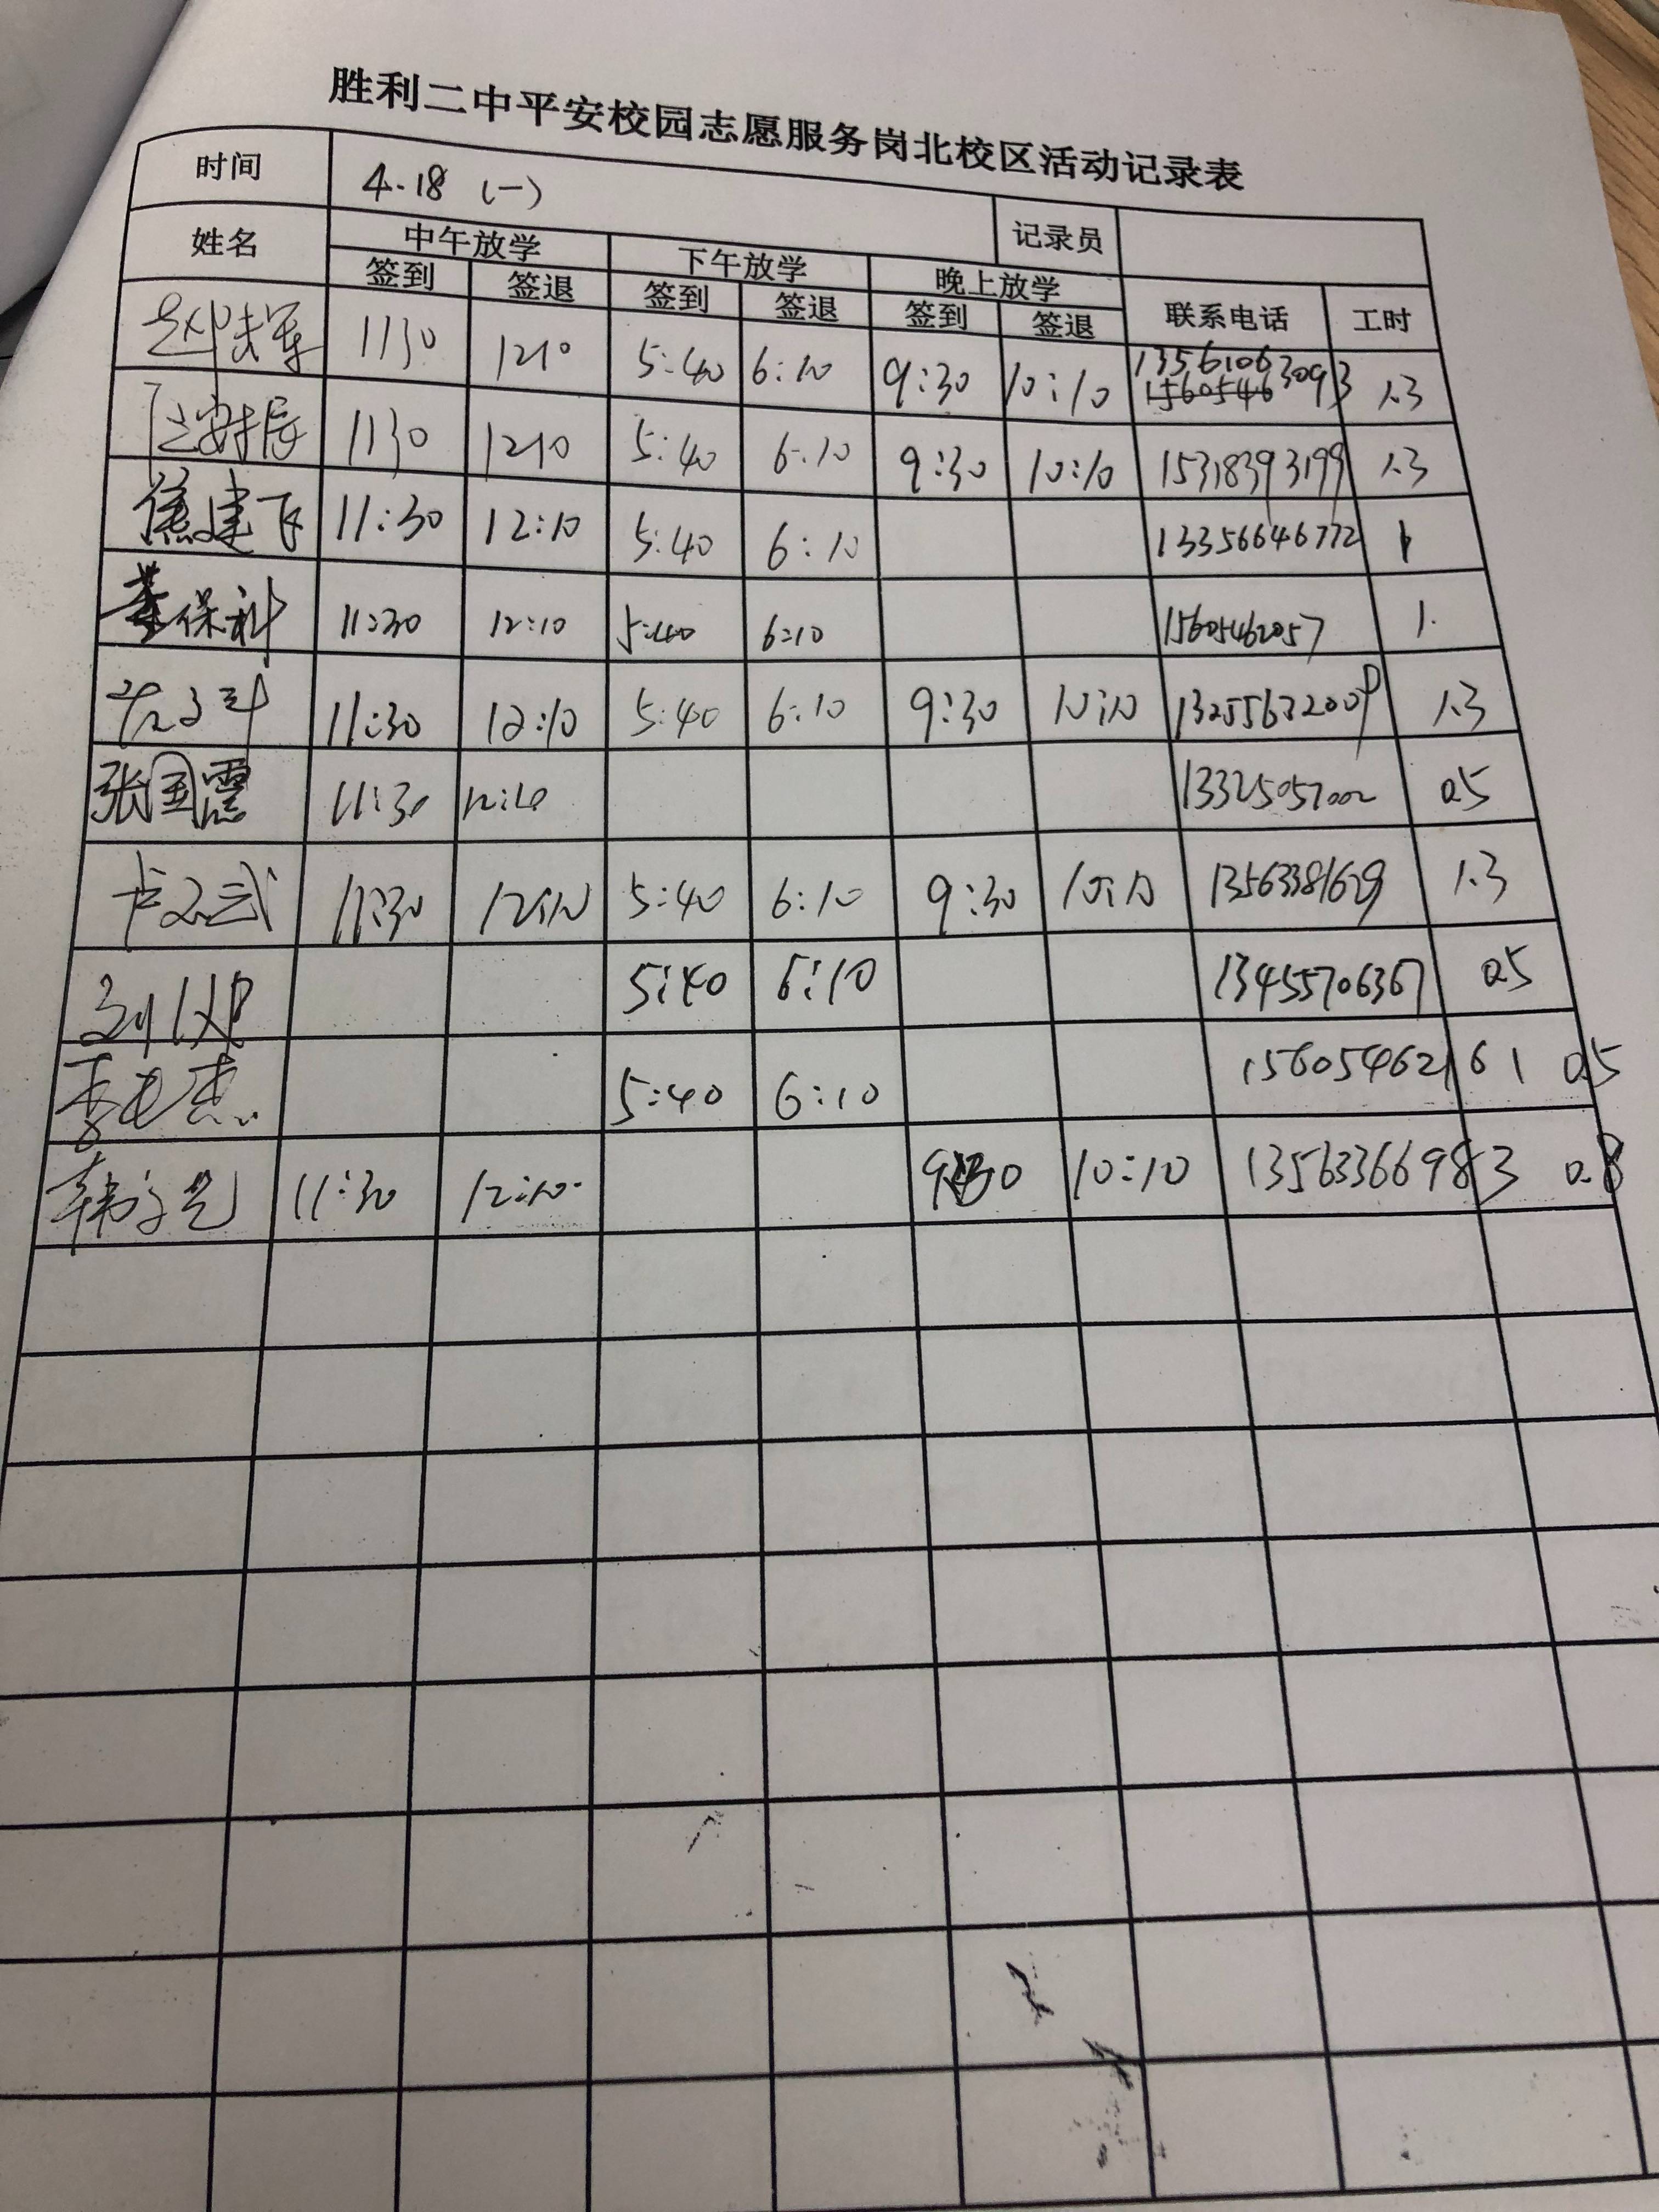 胜利二中平安校园志愿服务岗北校区活动记录表
时间 4.18 (一) 记录员
姓名 中午放学 下午放学 晚上放学 联系电话 工时
签到 签退 签到 签退 签到 签退
1130 1210 5:40 6:10 9:30 10:10 13561063093 1.3
1130 1210 5:40 6:10 9:30 10:10 15318393199 1.3
建飞 11:30 12:10 5:40 6:10 13356646772 1
董保科 11:30 12:10 5:40 6:10 15605462057 1.
11:30 12:10 5:40 6:10 9:30 10:10 1.3
张国震 11:30 12:10 13325057002 0.5
卢文武 11:30 12:10 5:40 6:10 9:30 10:10 13563381629 1.3
5:40 6:10 13455706367 0.5
5:40 6:10 15605462161 0.5
韩 11:30 12:10 9:30 10:10 13563366983 0.8